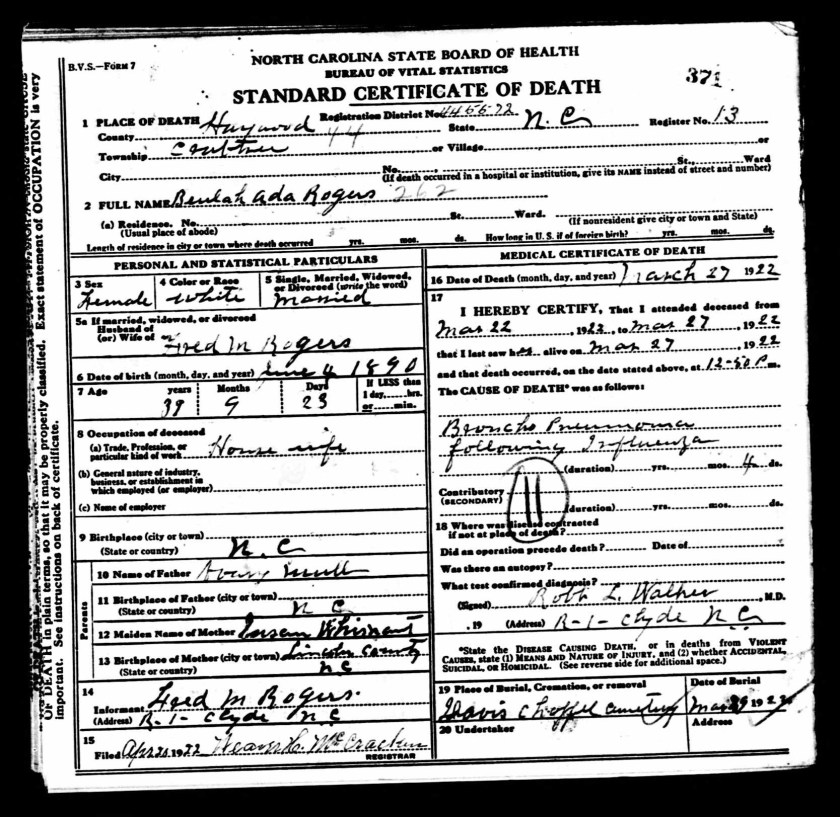 B.V.S.—FORM 7
NORTH CAROLINA STATE BOARD OF HEALTH
BUREAU OF VITAL STATISTICS
STANDARD CERTIFICATE OF DEATH
371
1 PLACE OF DEATH Haywood Registration District No. 445572
County 44 State N.C. Register No. 13
Township Crabtree or Village or
City No. St., Ward
(If death occurred in a hospital or institution, give its NAME instead of street and number)
2 FULL NAME Beulah Ada Rogers 262
(a) Residence. No. St. Ward.
(Usual place of abode) (If nonresident give city or town and State)
Length of residence in city or town where death occurred yrs. mos. ds. How long in U. S. if of foreign birth? yrs. mos. ds.
PERSONAL AND STATISTICAL PARTICULARS
3 Sex 4 Color or Race 5 Single, Married, Widowed, or Divorced (write the word)
Female White Married
5a If married, widowed, or divorced
Husband of
(or) Wife of Fred M Rogers
6 Date of birth (month, day, and year) June 4 1890
7 Age years Months Days If LESS than 1 day,....hrs. or....min.
39 9 23
8 Occupation of deceased
(a) Trade, Profession, or particular kind of work House wife
(b) General nature of industry, business, or establishment in which employed (or employer)
(c) Name of employer
9 Birthplace (city or town)
(State or country) N.C
Parents
10 Name of Father Mull
11 Birthplace of Father (city or town)
(State or country) N C
12 Maiden Name of Mother Whisnant
13 Birthplace of Mother (city or town) Lincoln County
(State or country) N C
14
Informant Fred M Rogers.
(Address) R-1- Clyde N C
15
Filed Apr 20 1922 Weaver H. McCracken
REGISTRAR
MEDICAL CERTIFICATE OF DEATH
16 Date of Death (month, day, and year) March 27 1922
17
I HEREBY CERTIFY, That I attended deceased from
Mar 22, 1922, to Mar 27, 1922
that I last saw her alive on Mar 27, 1922
and that death occurred, on the date stated above, at 12-50 P m.
The CAUSE OF DEATH* was as follows:
Broncho Pneumonia
following Influenza
(duration) yrs. mos. 4 ds.
Contributory
(SECONDARY)
11
(duration) yrs. mos. ds.
18 Where was disease contracted
if not at place of death?
Did an operation precede death? Date of
Was there an autopsy?
What test confirmed diagnosis?
(Signed) Robt L. Walker, M.D.
, 19 (Address) R-1- Clyde N C
*State the DISEASE CAUSING DEATH, or in deaths from VIOLENT CAUSES, state (1) MEANS AND NATURE OF INJURY, and (2) whether ACCIDENTAL, SUICIDAL, OR HOMICIDAL. (See reverse side for additional space.)
19 Place of Burial, Cremation, or removal Date of Burial
Davis Chappel Cemetery Mar 29 1922
20 Undertaker Address
OF DEATH in plain terms, so that it may be properly classified. Exact statement of OCCUPATION is very
important. See instructions on back of certificate.